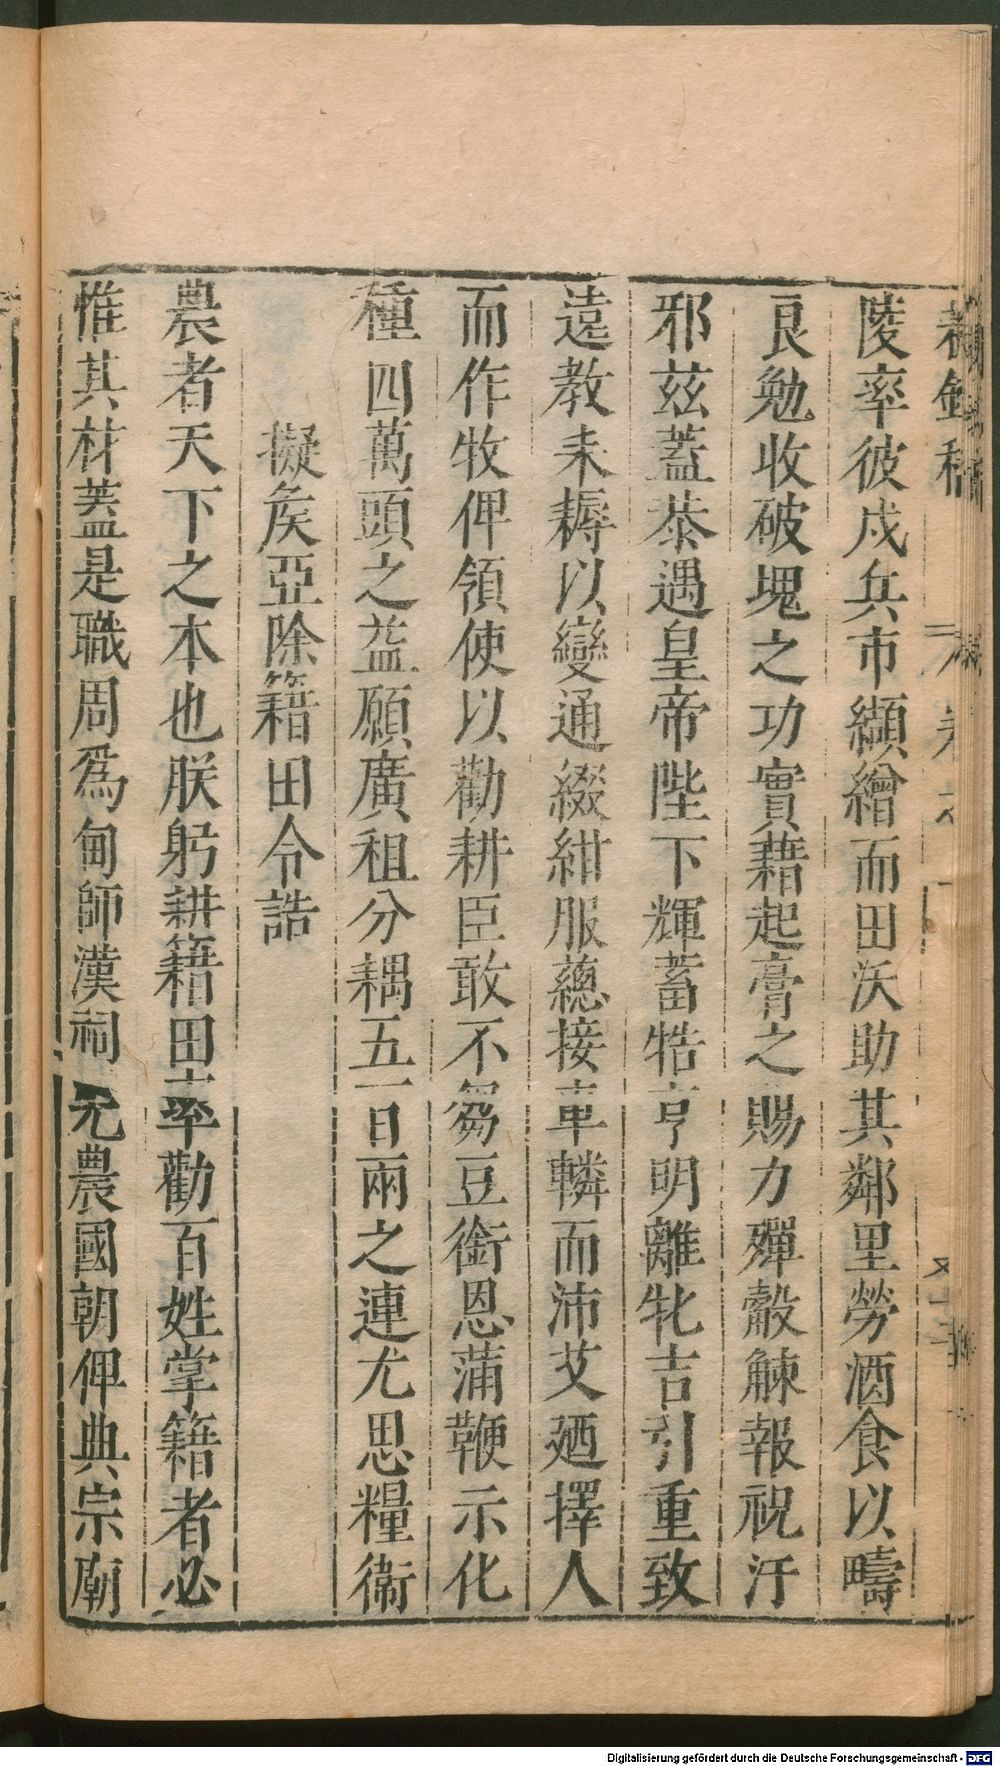 陵率彼戍兵市纈繒而田沃助其鄰里勞酒食以疇
良勉收破塊之功實藉起膏之賜力殫觳觫報祝汙
邪茲蓋恭遇皇帝陛下輝蓄牿亨明離牝吉引重致
遠教耒耨以變通綴紺服蔥接車轔而沛艾廼擇人
而作牧俾領使以勸耕臣敢不芻豆銜恩蒲鞭示化
種四萬頭之益願廣祖分耦五百兩之連尤思糧衛
擬矦亞除籍田令誥
農者天下之本也朕躬耕籍田率勸百姓掌籍者必
惟其材蓋是職周爲甸師漢祠先農國朝俾典宗廟
Digitalisierung gefördert durch die Deutsche Forschungsgemeinschaft - DFG